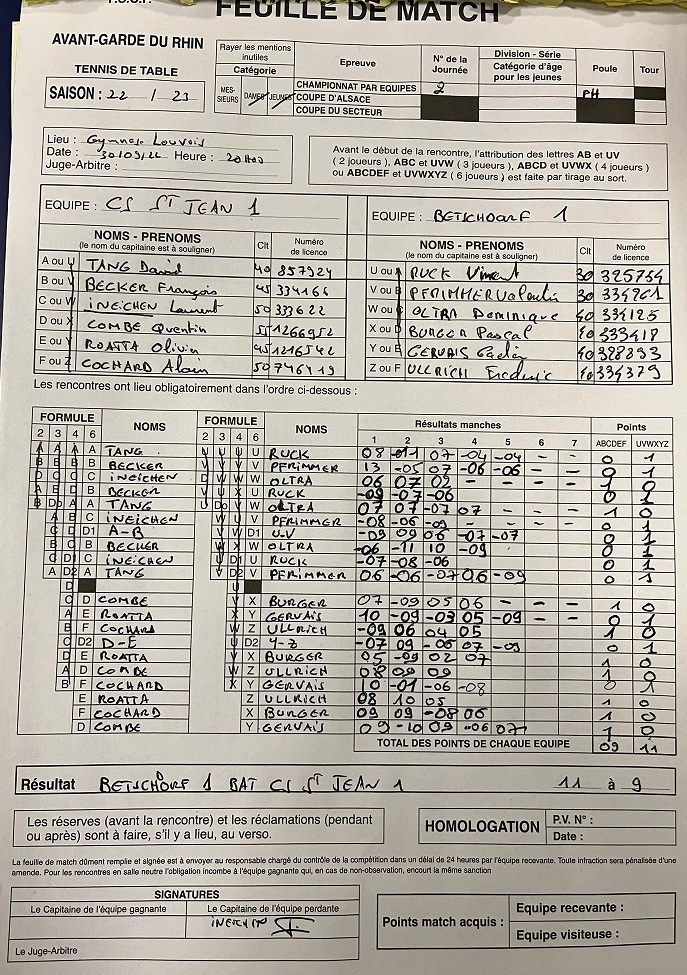 FEUILLE DE MATCH
AVANT-GARDE DU RHIN
TENNIS DE TABLE
SAISON : 22 / 23
Rayer les mentions inutiles
Catégorie
MES-SIEURS DAMES JEUNES
Epreuve
CHAMPIONNAT PAR EQUIPES
COUPE D'ALSACE
COUPE DU SECTEUR
N° de la Journée
2
Division - Série
Catégorie d'âge pour les jeunes
Poule
PH
Tour
Lieu : Gymnase Louvois
Date : 30/09/22 Heure : 20H00
Juge-Arbitre :
Avant le début de la rencontre, l'attribution des lettres AB et UV
( 2 joueurs ), ABC et UVW ( 3 joueurs ), ABCD et UVWX ( 4 joueurs )
ou ABCDEF et UVWXYZ ( 6 joueurs ) est faite par tirage au sort.
EQUIPE : CS ST JEAN 1
NOMS - PRENOMS
(le nom du capitaine est à souligner)
Clt
Numéro de licence
A ou U TANG David 40 857924
B ou V BECKER François 45 334166
C ou W INEICHEN Laurent 50 333622
D ou X COMBE Quentin 55 1266952
E ou Y ROATTA Olivier 45 1216542
F ou Z COCHARD Alain 50 746419
EQUIPE : BETSCHDORF 1
NOMS - PRENOMS
(le nom du capitaine est à souligner)
Clt
Numéro de licence
U ou A RUCK Vincent 30 325754
V ou B PFRIMMER Valentin 30 334961
W ou C OLTRA Dominique 40 334125
X ou D BURGER Pascal 40 333418
Y ou E GERVAIS 40 328393
Z ou F ULLRICH Frederic 40 334379
Les rencontres ont lieu obligatoirement dans l'ordre ci-dessous :
FORMULE NOMS FORMULE NOMS Résultats manches Points
2 3 4 6 2 3 4 6 1 2 3 4 5 6 7 ABCDEF UVWXYZ
A TANG U RUCK 08 -11 07 -04 -04 - - 0 1
B BECKER V PFRIMMER 13 -05 07 -06 -06 - - 0 1
C INEICHEN W OLTRA 06 07 02 - - - - 1 0
B BECKER U RUCK -09 -07 -06 0 1
A TANG W OLTRA 07 07 -07 07 - - - 1 0
C INEICHEN V PFRIMMER -08 -06 -09 - - - - 0 1
D1 A-B D1 U-V -09 09 06 -07 -07 0 1
B BECKER W OLTRA -06 -11 10 -09 0 1
C INEICHEN U RUCK -07 -08 -06 0 1
A TANG V PFRIMMER 06 -06 -07 06 -09 0 1
D COMBE X BURGER 07 -09 05 06 - - - 1 0
E ROATTA Y GERVAIS 10 -09 -03 05 -09 - - 0 1
F COCHARD Z ULLRICH -09 06 04 05 1 0
D2 D-E D2 Y-Z -07 09 -06 07 -09 0 1
E ROATTA X BURGER 05 -09 02 07 1 0
D COMBE Z ULLRICH 08 09 09 1 0
F COCHARD Y GERVAIS 10 -01 -06 -08 0 1
E ROATTA Z ULLRICH 08 10 05 1 0
F COCHARD X BURGER 09 09 -08 06 1 0
D COMBE Y GERVAIS 09 -10 09 -06 07 1 0
TOTAL DES POINTS DE CHAQUE EQUIPE 09 11
Résultat BETSCHDORF 1 BAT CS ST JEAN 1 11 à 9
Les réserves (avant la rencontre) et les réclamations (pendant
ou après) sont à faire, s'il y a lieu, au verso.
HOMOLOGATION
P.V. N° :
Date :
La feuille de match dûment remplie et signée est à envoyer au responsable chargé du contrôle de la compétition dans un délai de 24 heures par l'équipe recevante. Toute infraction sera pénalisée d'une
amende. Pour les rencontres en salle neutre l'obligation incombe à l'équipe gagnante qui, en cas de non-observation, encourt la même sanction
SIGNATURES
Le Capitaine de l'équipe gagnante
Le Capitaine de l'équipe perdante
Le Juge-Arbitre
Points match acquis :
Equipe recevante :
Equipe visiteuse :